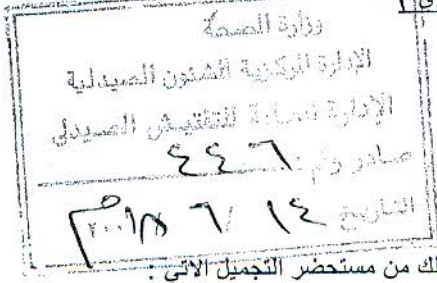 وزارة الصحة
الإدارة المركزية للشئون الصيدلية
الإدارة العامة للتفتيش الصيدلى
صادر رقم : ٤٤٦
التاريخ ١٤ / ٦ /
من مستحضر التجميل الآتى :